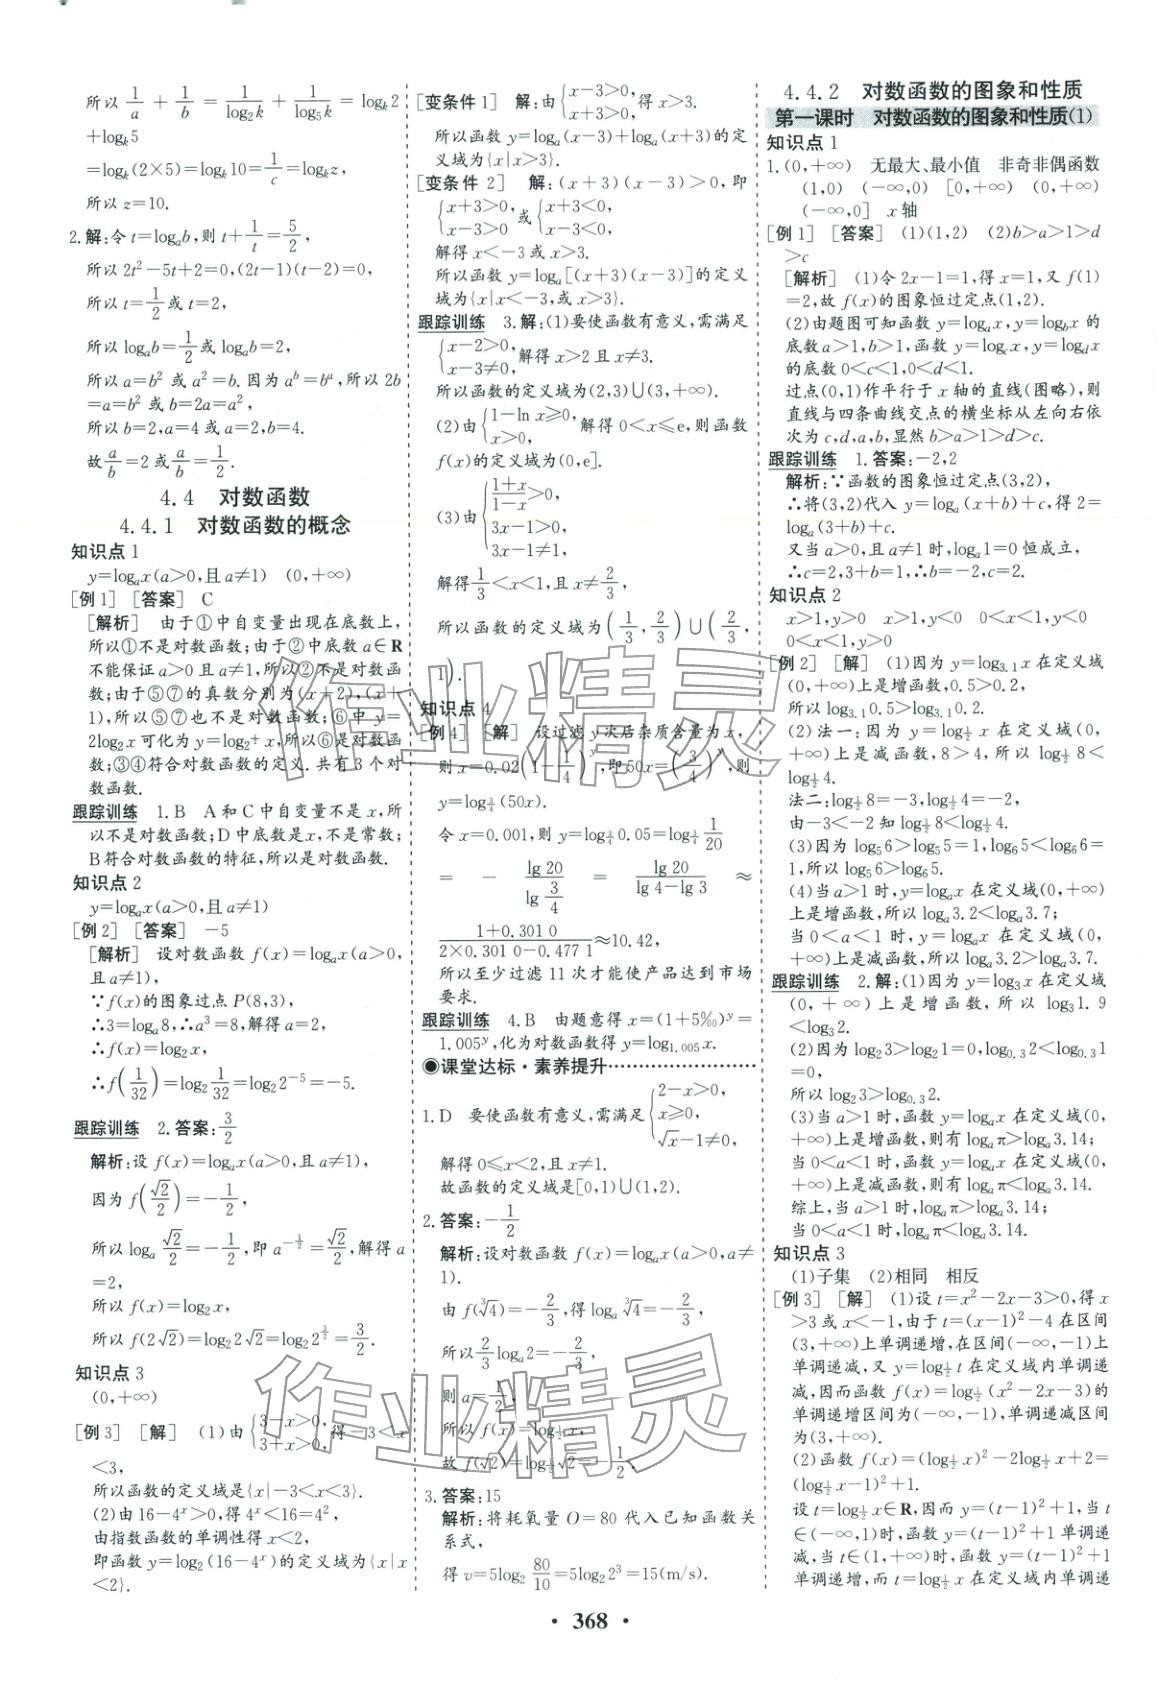 所以 1/a + 1/b = 1/log_k 2 + 1/log_k 5 = log_k 2
+log_k 5
=log_k(2×5)=log_k 10=1/c=log_k z,
所以 z=10.
2.解:令 t=log_a b,则 t+1/t=5/2,
所以 2t²-5t+2=0,(2t-1)(t-2)=0,
所以 t=1/2 或 t=2,
所以 log_a b=1/2 或 log_a b=2,
所以 a=b² 或 a²=b.因为 a^b=b^a,所以 2b
=a=b² 或 b=2a=a²,
所以 b=2,a=4 或 a=2,b=4.
故 a/b=2 或 a/b=1/2.
4.4 对数函数
4.4.1 对数函数的概念
知识点 1
y=log_a x(a>0,且 a≠1) (0,+∞)
[例 1] [答案] C
[解析] 由于①中自变量出现在底数上,
所以①不是对数函数;由于②中底数 a∈R
不能保证 a>0 且 a≠1,所以②不是对数函
数;由于⑤⑦的真数分别为(x+2),(x+
1),所以⑤⑦也不是对数函数;⑥中 y=
2log₂x 可化为 y=log_{2^{1/2}} x,所以⑥是对数函
数;③④符合对数函数的定义.共有 3 个对
数函数.
跟踪训练 1.B A 和 C 中自变量不是 x,所
以不是对数函数;D 中底数是 x,不是常数;
B 符合对数函数的特征,所以是对数函数.
知识点 2
y=log_a x(a>0,且 a≠1)
[例 2] [答案] -5
[解析] 设对数函数 f(x)=log_a x(a>0,
且 a≠1),
∵f(x)的图象过点 P(8,3),
∴3=log_a 8,∴a³=8,解得 a=2,
∴f(x)=log₂x,
∴f(1/32)=log₂ 1/32=log₂2⁻⁵=-5.
跟踪训练 2.答案:3/2
解析:设 f(x)=log_a x(a>0,且 a≠1),
因为 f(√2/2)=-1/2,
所以 log_a √2/2=-1/2,即 a^{-1/2}=√2/2,解得 a
=2,
所以 f(x)=log₂x,
所以 f(2√2)=log₂2√2=log₂2^{3/2}=3/2.
知识点 3
(0,+∞)
[例 3] [解] (1)由{3-x>0, 3+x>0,得-3<x
<3,
所以函数的定义域是{x|-3<x<3}.
(2)由 16-4ˣ>0,得 4ˣ<16=4²,
由指数函数的单调性得 x<2,
即函数 y=log₂(16-4ˣ)的定义域为{x|x
<2}.
[变条件 1] 解:由{x-3>0, x+3>0,得 x>3.
所以函数 y=log_a(x-3)+log_a(x+3)的定
义域为{x|x>3}.
[变条件 2] 解:(x+3)(x-3)>0,即
{x+3>0, x-3>0 或{x+3<0, x-3<0.
解得 x<-3 或 x>3.
所以函数 y=log_a[(x+3)(x-3)]的定义
域为{x|x<-3,或 x>3}.
跟踪训练 3.解:(1)要使函数有意义,需满足
{x-2>0, x-3≠0,解得 x>2 且 x≠3.
所以函数的定义域为(2,3)∪(3,+∞).
(2)由{1-ln x≥0, x>0,解得 0<x≤e,则函数
f(x)的定义域为(0,e].
(3)由{(1+x)/(1-x)>0, 3x-1>0, 3x-1≠1,
解得1/3<x<1,且 x≠2/3,
所以函数的定义域为(1/3,2/3)∪(2/3,
1).
知识点 4
[例 4] [解] 设过滤 y 次后杂质含量为 x,
则 x=0.02(1-1/4)^y,即 50x=(3/4)^y,则
y=log_{3/4}(50x).
令 x=0.001,则 y=log_{3/4}0.05=log_{3/4} 1/20
= - lg 20/lg 3/4 = lg 20/(lg 4-lg 3) ≈
(1+0.301 0)/(2×0.301 0-0.477 1)≈10.42,
所以至少过滤 11 次才能使产品达到市场
要求.
跟踪训练 4.B 由题意得 x=(1+5‰)^y=
1.005^y,化为对数函数得 y=log_{1.005}x.
◉课堂达标·素养提升
1.D 要使函数有意义,需满足{2-x>0, x≥0, √x-1≠0,
解得 0≤x<2,且 x≠1.
故函数的定义域是[0,1)∪(1,2).
2.答案:-1/2
解析:设对数函数 f(x)=log_a x(a>0,a≠
1).
由 f(∛4)=-2/3,得 log_a ∛4=-2/3,
所以2/3log_a 2=-2/3,
则 a=1/2,
所以 f(x)=log_{1/2}x,
故 f(√2)=log_{1/2}√2=-1/2.
3.答案:15
解析:将耗氧量 O=80 代入已知函数关
系式,
得 v=5log₂ 80/10=5log₂2³=15(m/s).
4.4.2 对数函数的图象和性质
第一课时 对数函数的图象和性质(1)
知识点 1
1.(0,+∞) 无最大、最小值 非奇非偶函数
(1,0) (-∞,0) [0,+∞) (0,+∞)
(-∞,0] x 轴
[例 1] [答案] (1)(1,2) (2)b>a>1>d
>c
[解析] (1)令 2x-1=1,得 x=1,又 f(1)
=2,故 f(x)的图象恒过定点(1,2).
(2)由题图可知函数 y=log_a x,y=log_b x 的
底数 a>1,b>1,函数 y=log_c x,y=log_d x
的底数 0<c<1,0<d<1.
过点(0,1)作平行于 x 轴的直线(图略),则
直线与四条曲线交点的横坐标从左向右依
次为 c,d,a,b,显然 b>a>1>d>c.
跟踪训练 1.答案:-2,2
解析:∵函数的图象过定点(3,2),
∴将(3,2)代入 y=log_a(x+b)+c,得 2=
log_a(3+b)+c.
又当 a>0,且 a≠1 时,log_a 1=0 恒成立,
∴c=2,3+b=1,∴b=-2,c=2.
知识点 2
x>1,y>0 x>1,y<0 0<x<1,y<0
0<x<1,y>0
[例 2] [解] (1)因为 y=log_{3.1}x 在定义域
(0,+∞)上是增函数,0.5>0.2,
所以 log_{3.1}0.5>log_{3.1}0.2.
(2)法一:因为函数 y=log_{1/2} x 在定义域(0,
+∞)上是减函数,8>4,所以 log_{1/2}8<
log_{1/2}4.
法二:log_{1/2}8=-3,log_{1/2}4=-2,
由-3<-2 知 log_{1/2}8<log_{1/2}4.
(3)因为 log₅6>log₅5=1,log₆5<log₆6=
1,所以 log₅6>log₆5.
(4)当 a>1 时,y=log_a x 在定义域(0,+∞)
上是增函数,所以 log_a 3.2<log_a 3.7;
当 0<a<1 时,y=log_a x 在定义域(0,
+∞)上是减函数,所以 log_a 3.2>log_a 3.7.
跟踪训练 2.解:(1)因为 y=log₃x 在定义域
(0,+∞)上是增函数,所以 log₃1.9
<log₃2.
(2)因为 log₂3>log₂1=0,log_{0.3}2<log_{0.3}1
=0,
所以 log₂3>log_{0.3}2.
(3)当 a>1 时,函数 y=log_a x 在定义域(0,
+∞)上是增函数,则有 log_a π>log_a 3.14;
当 0<a<1 时,函数 y=log_a x 在定义域(0,
+∞)上是减函数,则有 log_a π<log_a 3.14.
综上,当 a>1 时,log_a π>log_a 3.14;
当 0<a<1 时,log_a π<log_a 3.14.
知识点 3
(1)子集 (2)相同 相反
[例 3] [解] (1)设 t=x²-2x-3>0,得 x
>3 或 x<-1,由于 t=(x-1)²-4 在区间
(3,+∞)上单调递增,在区间(-∞,-1)上
单调递减,又 y=log_{1/2} t 在定义域内单调递
减,因而函数 f(x)=log_{1/2}(x²-2x-3)的
单调递增区间为(-∞,-1),单调递减区间
为(3,+∞).
(2)函数 f(x)=(log_{1/2}x)²-2log_{1/2}x+2=
(log_{1/2}x-1)²+1.
设 t=log_{1/2}x∈R,因而 y=(t-1)²+1,当 t
∈(-∞,1)时,函数 y=(t-1)²+1 单调递
减,当 t∈(1,+∞)时,函数 y=(t-1)²+1
单调递增,而 t=log_{1/2} x 在定义域内单调递
· 368 ·
作业精灵
作业精灵